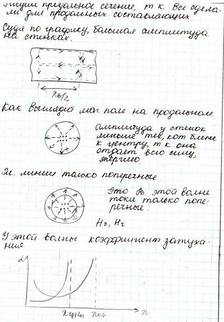 продольное сечение, т.к. все сдела-
ли для продольных составляющих
Судя по графику, большая амплитуда
на стенках.
Как выглядит маг. поле на продольном
Амплитуда у стенок
меньше тех, кот. ближе
к центру, т.к. она
отдаёт всю
энергию
Эл. линии только поперечные
Это В этой волне
токи только попе-
речные.
У этой волны коэффициент затуха-
ния